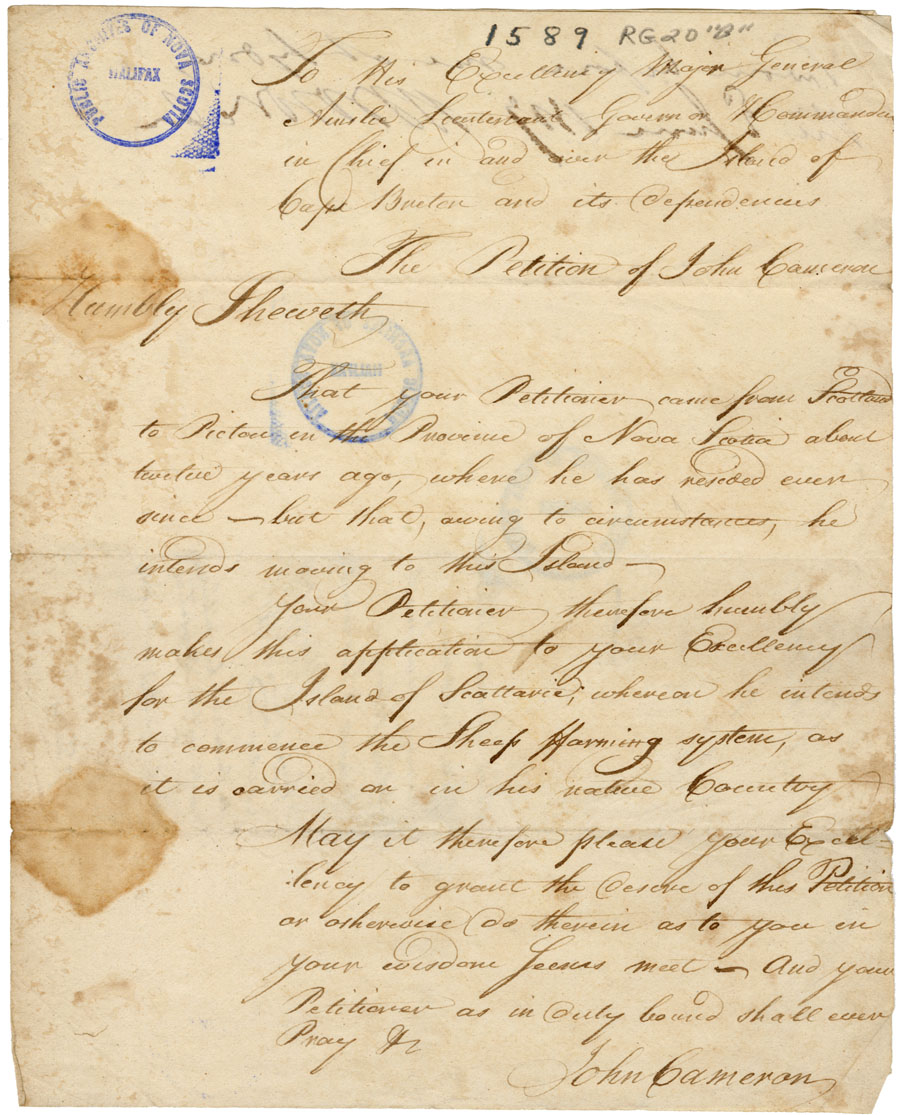 1589 RG20 "B"
PUBLIC ARCHIVES OF NOVA SCOTIA
HALIFAX
To His Excellency Major General
Ainslie Lieutenant Governor & Commander
in Chief in and over the Island of
Cape Breton and its dependencies
The Petition of John Cameron
Humbly Sheweth,
That your Petitioner came from Scotland
to Pictou in the Province of Nova Scotia about
twelve years ago, where he has resided ever
since – but that, owing to circumstances, he
intends moving to this Island –
Your Petitioner, therefore humbly
makes this application to your Excellency
for the Island of Scattarie; whereon he intends
to commence the Sheep Farming system, as
it is carried on in his native Country
May it therefore please your Excel-
lency to grant the desire of this Petition
or otherwise do therein as to you in
your wisdom Seems meet – And your
Petitioner as in duty bound shall ever
Pray &c
John Cameron